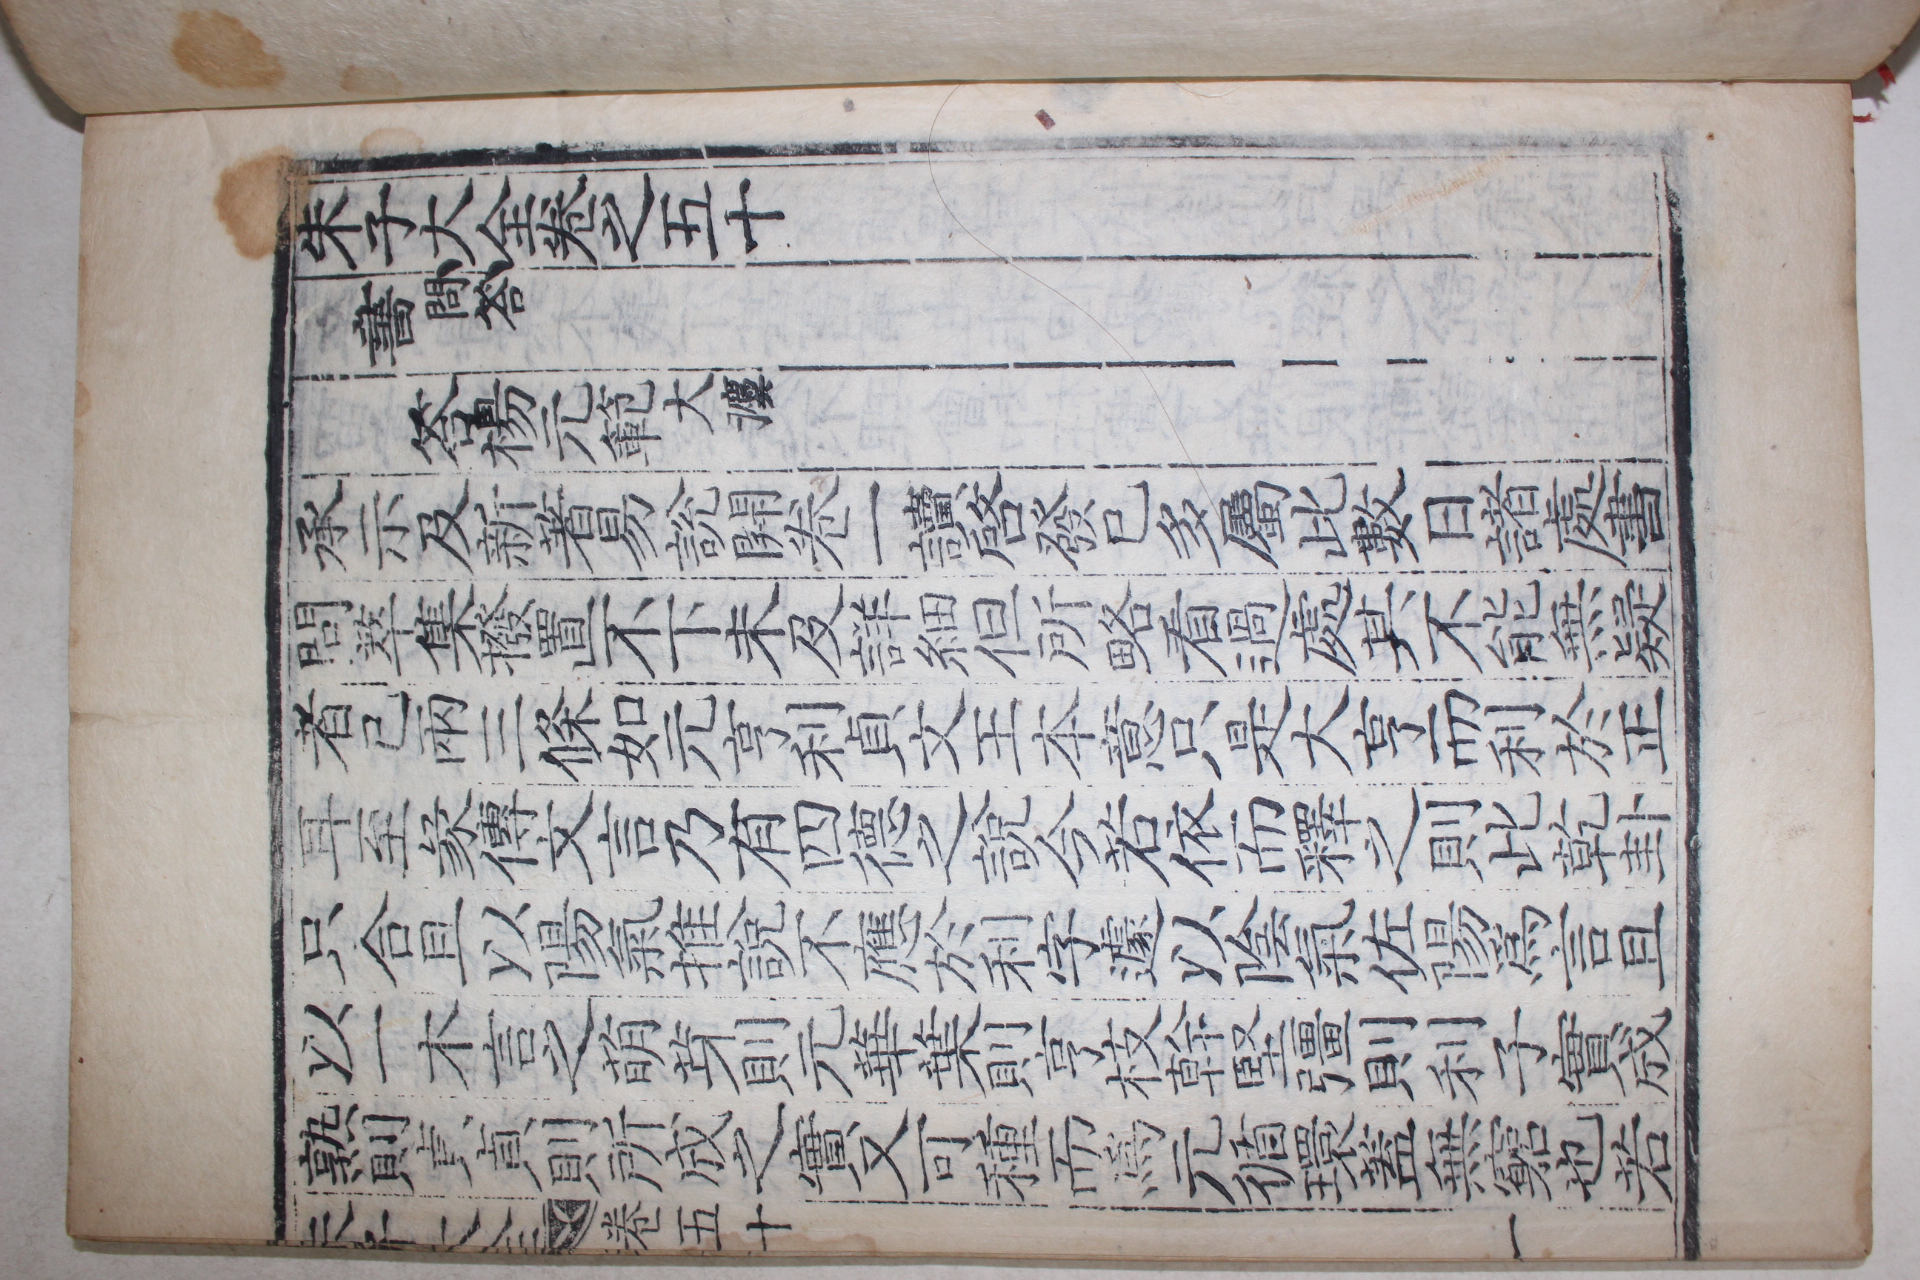 朱子大全卷之五十
書 問答
答楊元範 大
承示及新著易說開卷一讀啓發已多屬此數日諸處書
問萃集撥置不下未及詳細但所略看過處其不能無疑
者已兩三條如元亨利貞文王本意只是大亨而利於正
耳至彖傳文言乃有四德之說今若依而釋之則此乾卦
只合且以陽氣推說不應於利字遽以陰氣佐陽爲言且
以一木言之萌芽則元華葉則亨枝幹堅彊則利子實成
熟則貞貞則所成之實又可種而爲元循環蓋無窮也若
朱子大全 卷五十 一